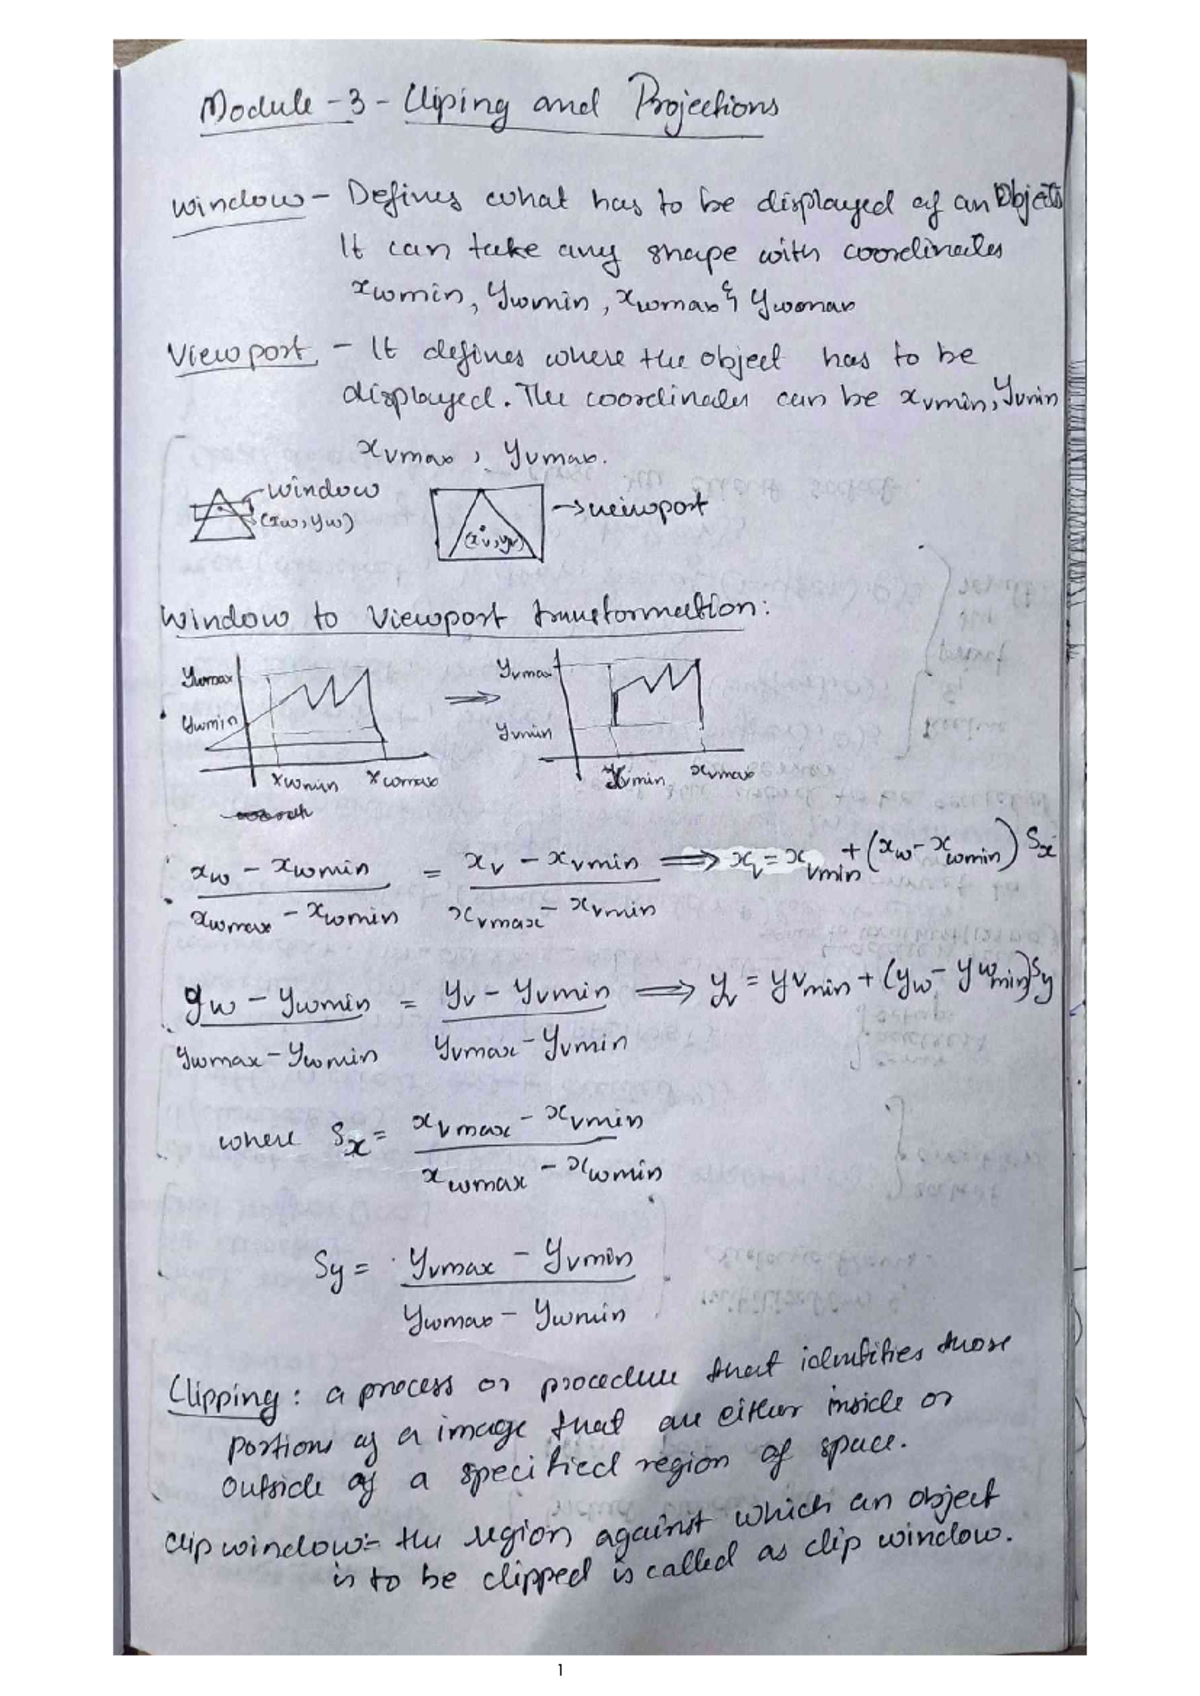 Module - 3 - Cliping and Projections
Window - Defines what has to be displayed of an Objects
It can take any shape with coordinates
xwmin, ywmin, xwmax & ywmax
Viewport - It defines where the object has to be
displayed. The coordinates can be xvmin, yvmin
xvmax, yvmax.
window
(xw, yw)
(xv, yv)
→ viewport
Window to Viewport transformation:
ywmax
ywmin
xwmin xwmax
⇒
yvmax
yvmin
xvmin xvmax
(xw - xwmin) / (xwmax - xwmin) = (xv - xvmin) / (xvmax - xvmin) ⇒ xv = xvmin + (xw - xwmin) Sx
(yw - ywmin) / (ywmax - ywmin) = (yv - yvmin) / (yvmax - yvmin) ⇒ yv = yvmin + (yw - ywmin) Sy
where Sx = (xvmax - xvmin) / (xwmax - xwmin)
Sy = (yvmax - yvmin) / (ywmax - ywmin)
Clipping : a process or procedure that identifies those
portions of a image that are either inside or
outside of a specified region of space.
Clip window:- the region against which an object
is to be clipped is called as clip window.
1